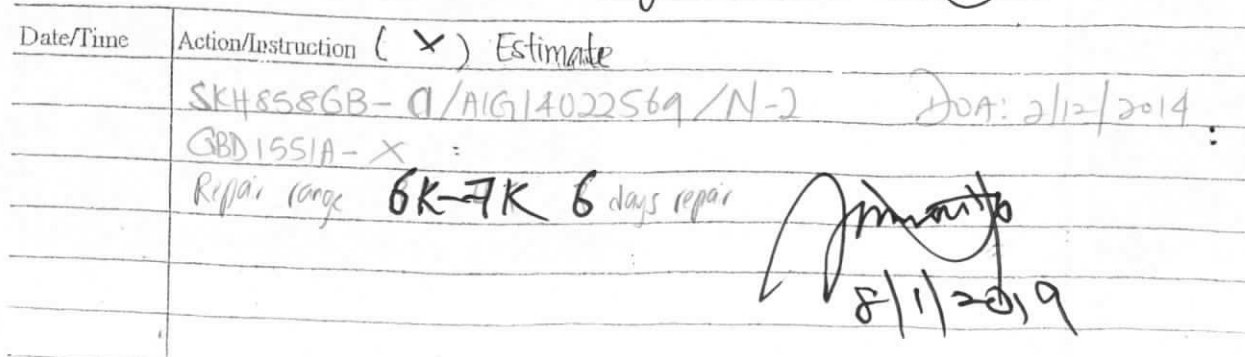 Date/Time Action/Instruction ( X ) Estimate
SKH8586B- a/AIG14022569/N-2 DOA: 2/12/2014
GBD1551A - X :
Repair range 6K-7K 6 days repair
8/1/2019